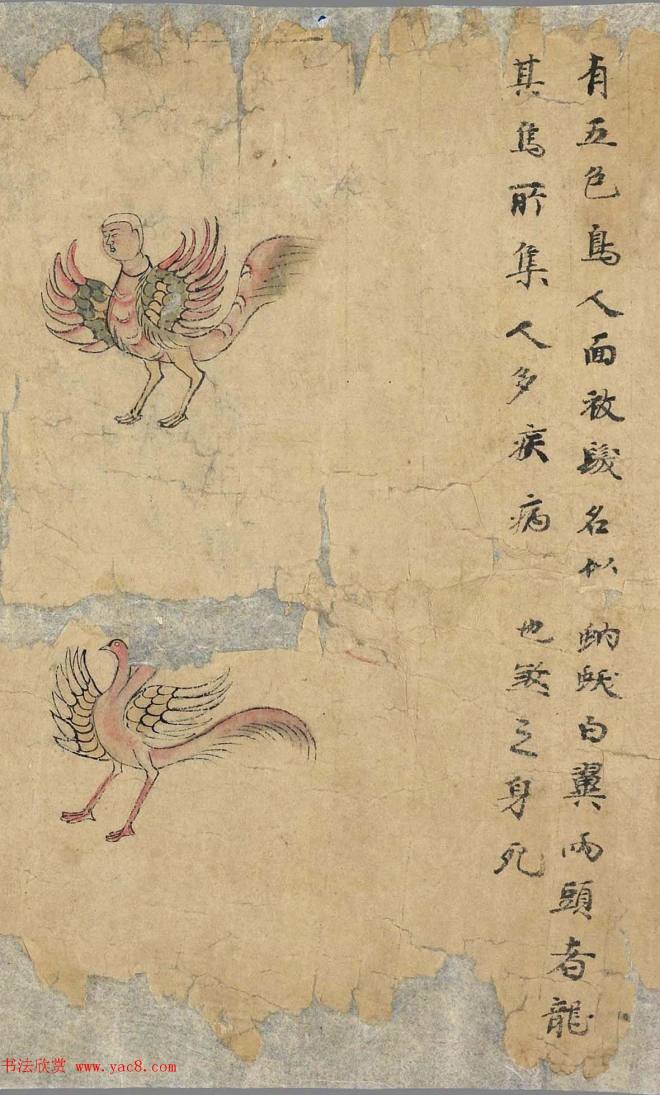 有五色鳥人面被髮名似
其鳥所集人多疾病
蚋蛾白翼兩頭者龍
也煞之身死
书法欣赏 www.yac8.com